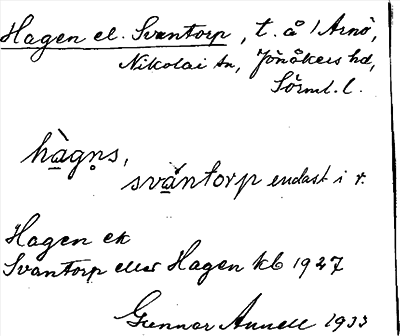 Hagen el. Svantorp, t. å Arnö,
Nikolai sn, Jönåkers hd,
Sörml. l.
hàgn̥s,
svántorp endast i r.
Hagen ek
Svantorp eller Hagen kb 1927
Gunnar Annell 1933